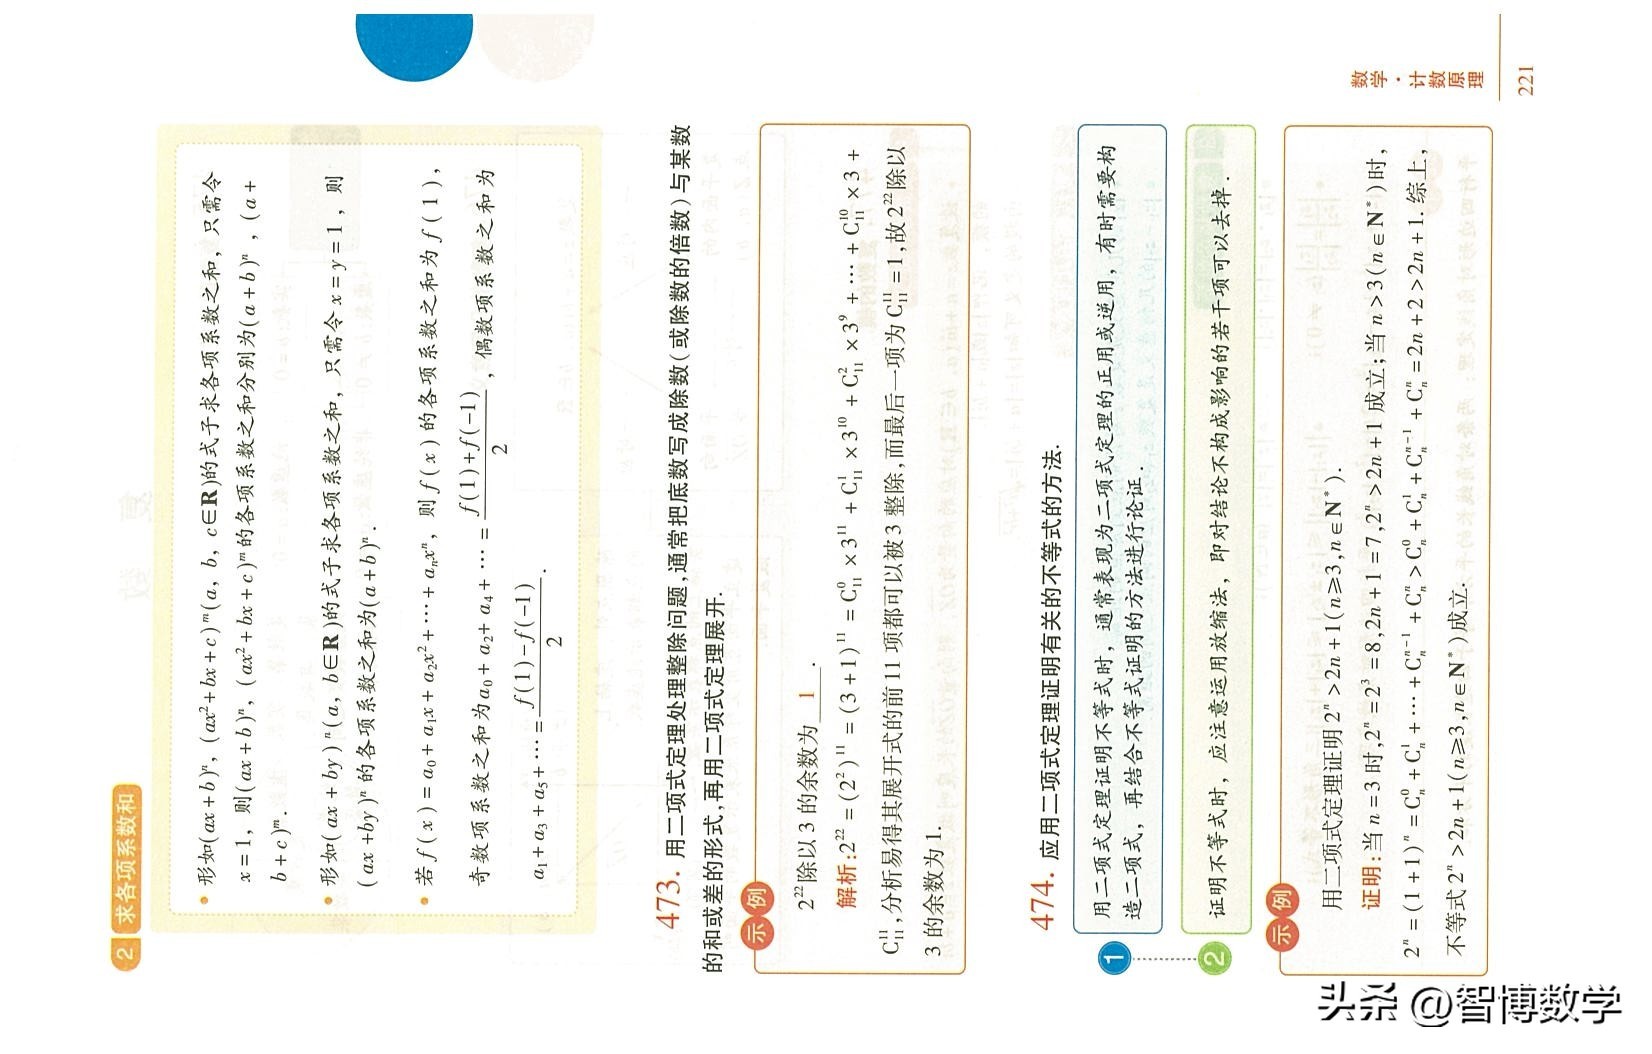 2 求各项系数和
• 形如(ax+b)ⁿ, (ax²+bx+c)ᵐ(a, b, c∈R)的式子求各项系数之和, 只需令
x=1, 则(ax+b)ⁿ, (ax²+bx+c)ᵐ的各项系数之和分别为(a+b)ⁿ, (a+
b+c)ᵐ.
• 形如(ax+by)ⁿ(a, b∈R)的式子求各项系数之和, 只需令x=y=1, 则
(ax+by)ⁿ的各项系数之和为(a+b)ⁿ.
• 若f(x)=a₀+a₁x+a₂x²+…+aₙxⁿ, 则f(x)的各项系数之和为f(1),
奇数项系数之和为a₀+a₂+a₄+…=\frac{f(1)+f(-1)}{2}, 偶数项系数之和为
a₁+a₃+a₅+…=\frac{f(1)-f(-1)}{2}.
473. 用二项式定理处理整除问题,通常把底数写成除数(或除数的倍数)与某数
的和或差的形式,再用二项式定理展开.
示例
2²²除以3的余数为 1 .
解析:2²²=(2²)¹¹=(3+1)¹¹=C_{11}^{0}×3¹¹+C_{11}^{1}×3¹⁰+C_{11}^{2}×3⁹+…+C_{11}^{10}×3+
C_{11}^{11},分析易得其展开式的前11项都可以被3整除,而最后一项为C_{11}^{11}=1,故2²²除以
3的余数为1.
474. 应用二项式定理证明有关的不等式的方法.
1 用二项式定理证明不等式时, 通常表现为二项式定理的正用或逆用, 有时需要构
造二项式, 再结合不等式证明的方法进行论证.
2 证明不等式时, 应注意运用放缩法, 即对结论不构成影响的若干项可以去掉.
示例
用二项式定理证明2ⁿ>2n+1(n≥3,n∈N*).
证明:当n=3时,2ⁿ=2³=8,2n+1=7,2ⁿ>2n+1成立;当n>3(n∈N*)时,
2ⁿ=(1+1)ⁿ=C_{n}^{0}+C_{n}^{1}+…+C_{n}^{n-1}+C_{n}^{n}>C_{n}^{0}+C_{n}^{1}+C_{n}^{n-1}+C_{n}^{n}=2n+2>2n+1.综上,
不等式2ⁿ>2n+1(n≥3,n∈N*)成立.
数学·计数原理
221
头条 @智博数学